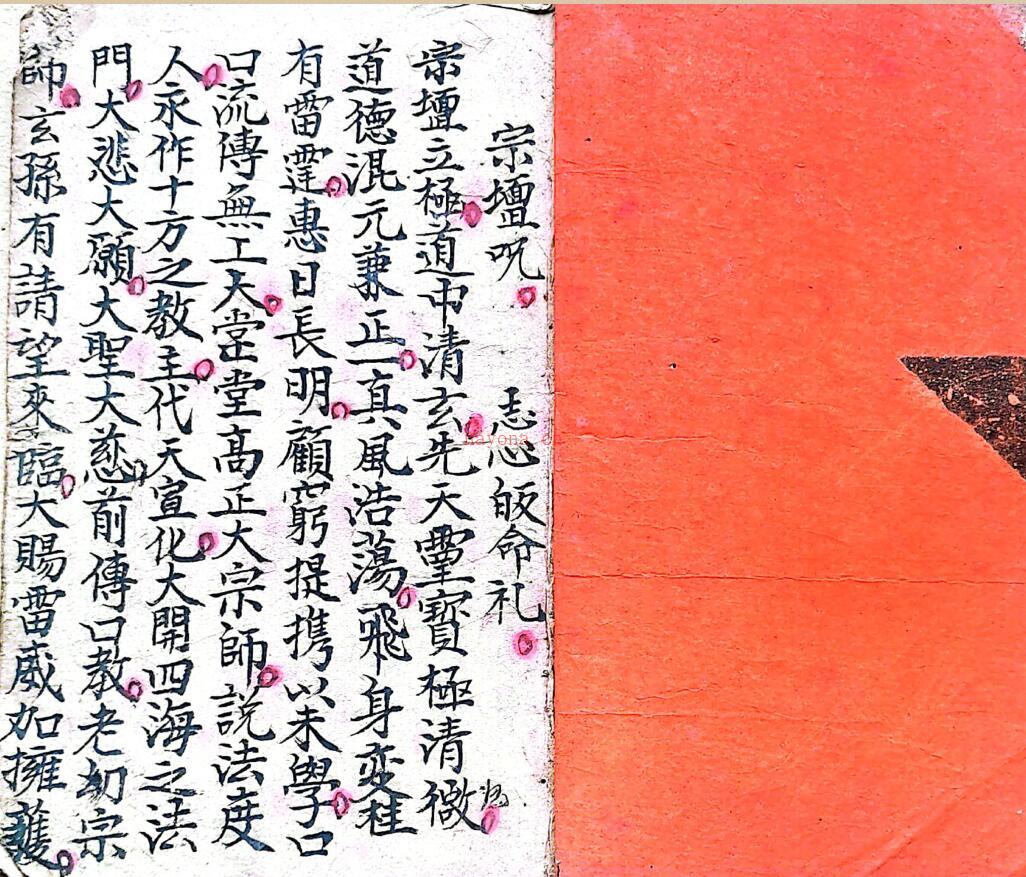 宗壇咒 志心皈命礼
宗壇立極道中清玄先天靈寶極清微
道德混元兼正一真風浩蕩飛身变
有雷霆惠日長明顧窮提携以未學口
口流傳無工大堂堂高正大宗師說法度
人永作十方之教主代天宣化大開四海之法
門大悲大願大聖大慈前傳口教老幼宗
師玄孫有請望來臨大賜雷威加擁護
nayona.cn